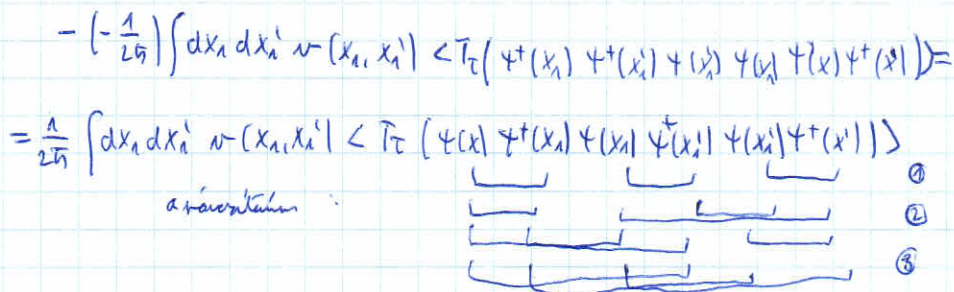 - (-1/2ħ) ∫dx₁ dx₁' v(x₁, x₁') <T_τ(ψ⁺(x₁) ψ⁺(x₁') ψ(x₁') ψ(x₁) ψ(x) ψ⁺(x'))>=
= 1/2ħ ∫dx₁ dx₁' v(x₁, x₁') < T_τ (ψ(x) ψ⁺(x₁) ψ(x₁) ψ⁺(x₁') ψ(x₁') ψ⁺(x'))>
①
②
③